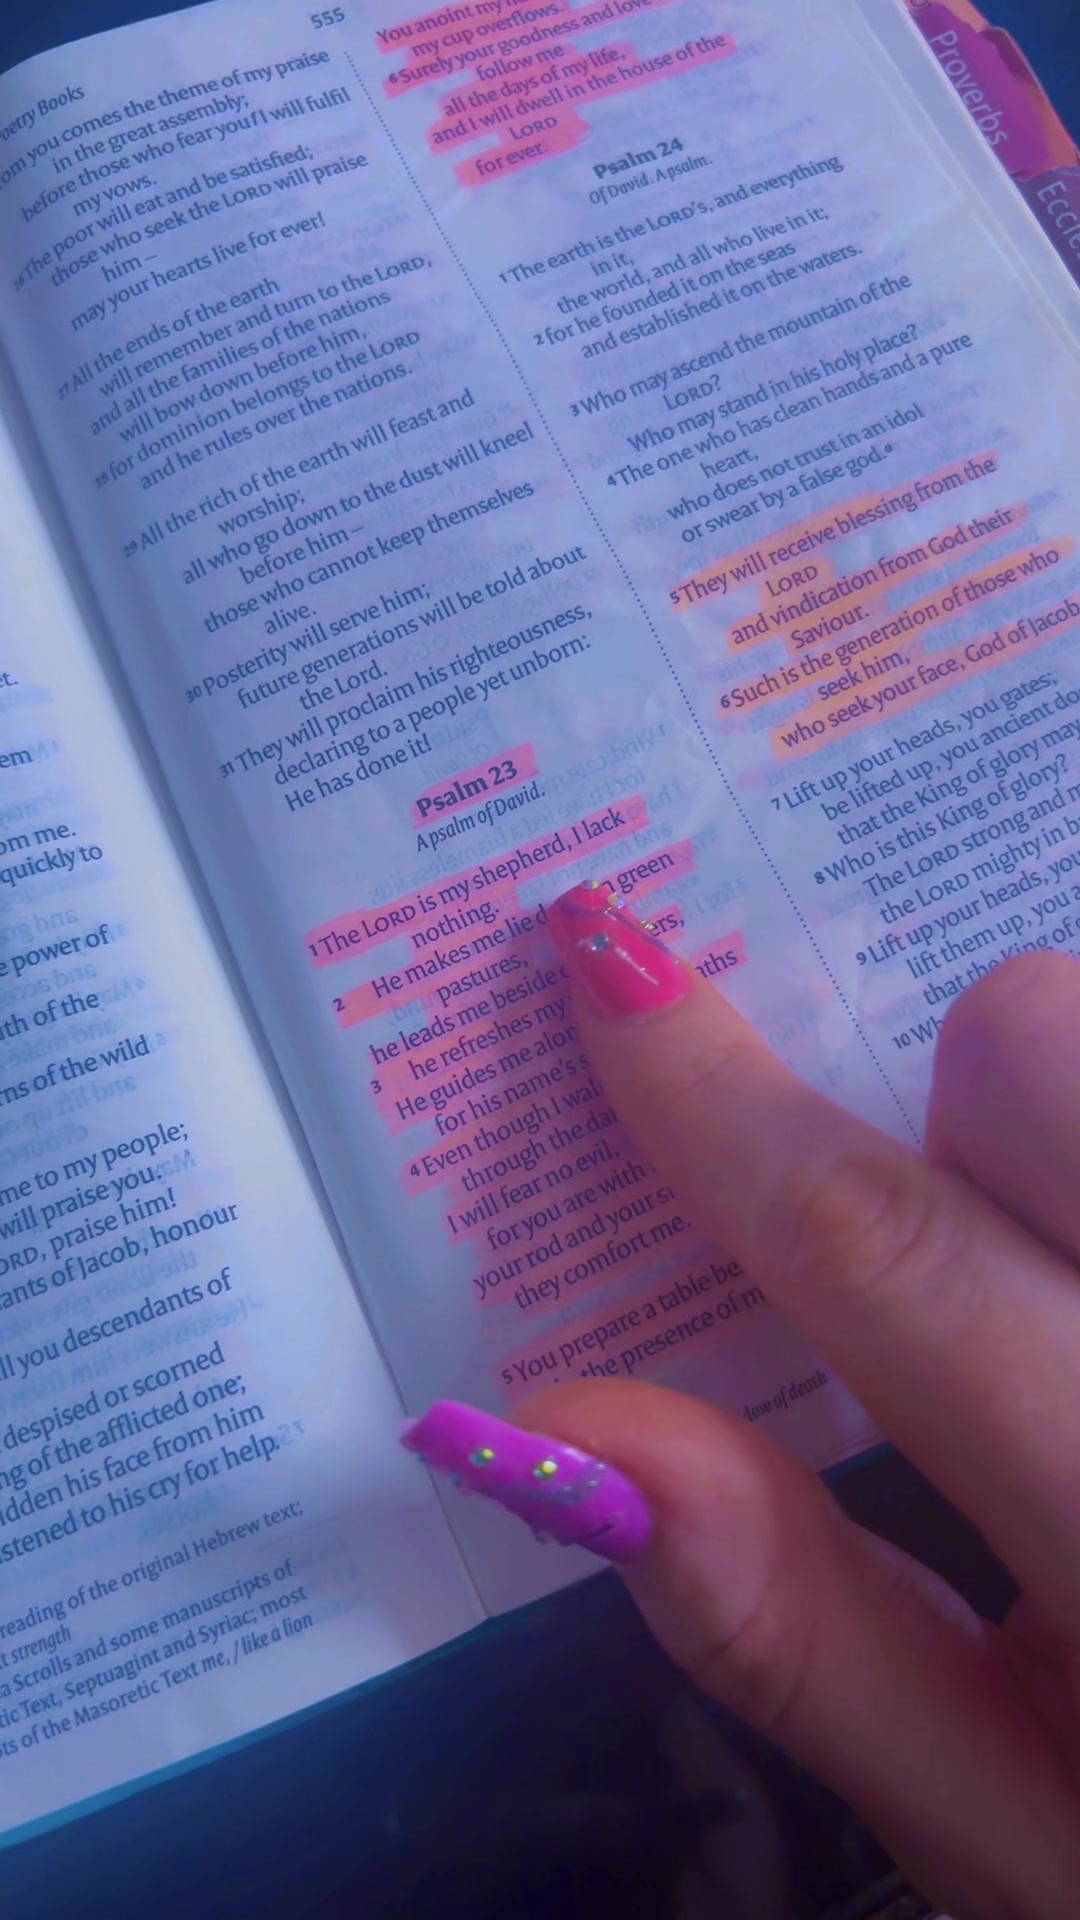 555
oetry Books
om you comes the theme of my praise
in the great assembly;
before those who fear you f I will fulfil
my vows.
26 The poor will eat and be satisfied;
those who seek the LORD will praise
him –
may your hearts live for ever!
27 All the ends of the earth
will remember and turn to the LORD,
and all the families of the nations
will bow down before him,
28 for dominion belongs to the LORD
and he rules over the nations.
29 All the rich of the earth will feast and
worship;
all who go down to the dust will kneel
before him –
those who cannot keep themselves
alive.
30 Posterity will serve him;
future generations will be told about
the Lord.
31 They will proclaim his righteousness,
declaring to a people yet unborn:
He has done it!
Psalm 23
A psalm of David.
1 The LORD is my shepherd, I lack
nothing.
2 He makes me lie d n green
pastures,
he leads me beside ers,
3 he refreshes my
He guides me alon aths
for his name's s
4 Even though I wal
through the da
I will fear no evil,
for you are with
your rod and your st
they comfort me.
5 You prepare a table be
the presence of m
dow of death
You anoint my
my cup overflows.
6 Surely your goodness and love
follow me
all the days of my life,
and I will dwell in the house of the
LORD
for ever.
Psalm 24
Of David. A psalm.
1 The earth is the LORD's, and everything
in it,
the world, and all who live in it;
2 for he founded it on the seas
and established it on the waters.
3 Who may ascend the mountain of the
LORD?
Who may stand in his holy place?
4 The one who has clean hands and a pure
heart,
who does not trust in an idol
or swear by a false god.a
5 They will receive blessing from the
LORD
and vindication from God their
Saviour.
6 Such is the generation of those who
seek him,
who seek your face, God of Jacob
7 Lift up your heads, you gates;
be lifted up, you ancient do
that the King of glory may
8 Who is this King of glory?
The LORD strong and m
the LORD mighty in b
9 Lift up your heads, you
lift them up, you a
that the King of
10 Wh
Proverbs
Eccle
et.
em
om me.
quickly to
e power of
th of the
rns of the wild
me to my people;
will praise you.
ORD, praise him!
ants of Jacob, honour
ll you descendants of
despised or scorned
ng of the afflicted one;
idden his face from him
stened to his cry for help.
reading of the original Hebrew text;
t strength
a Scrolls and some manuscripts of
tic Text, Septuagint and Syriac; most
ots of the Masoretic Text me, / like a lion